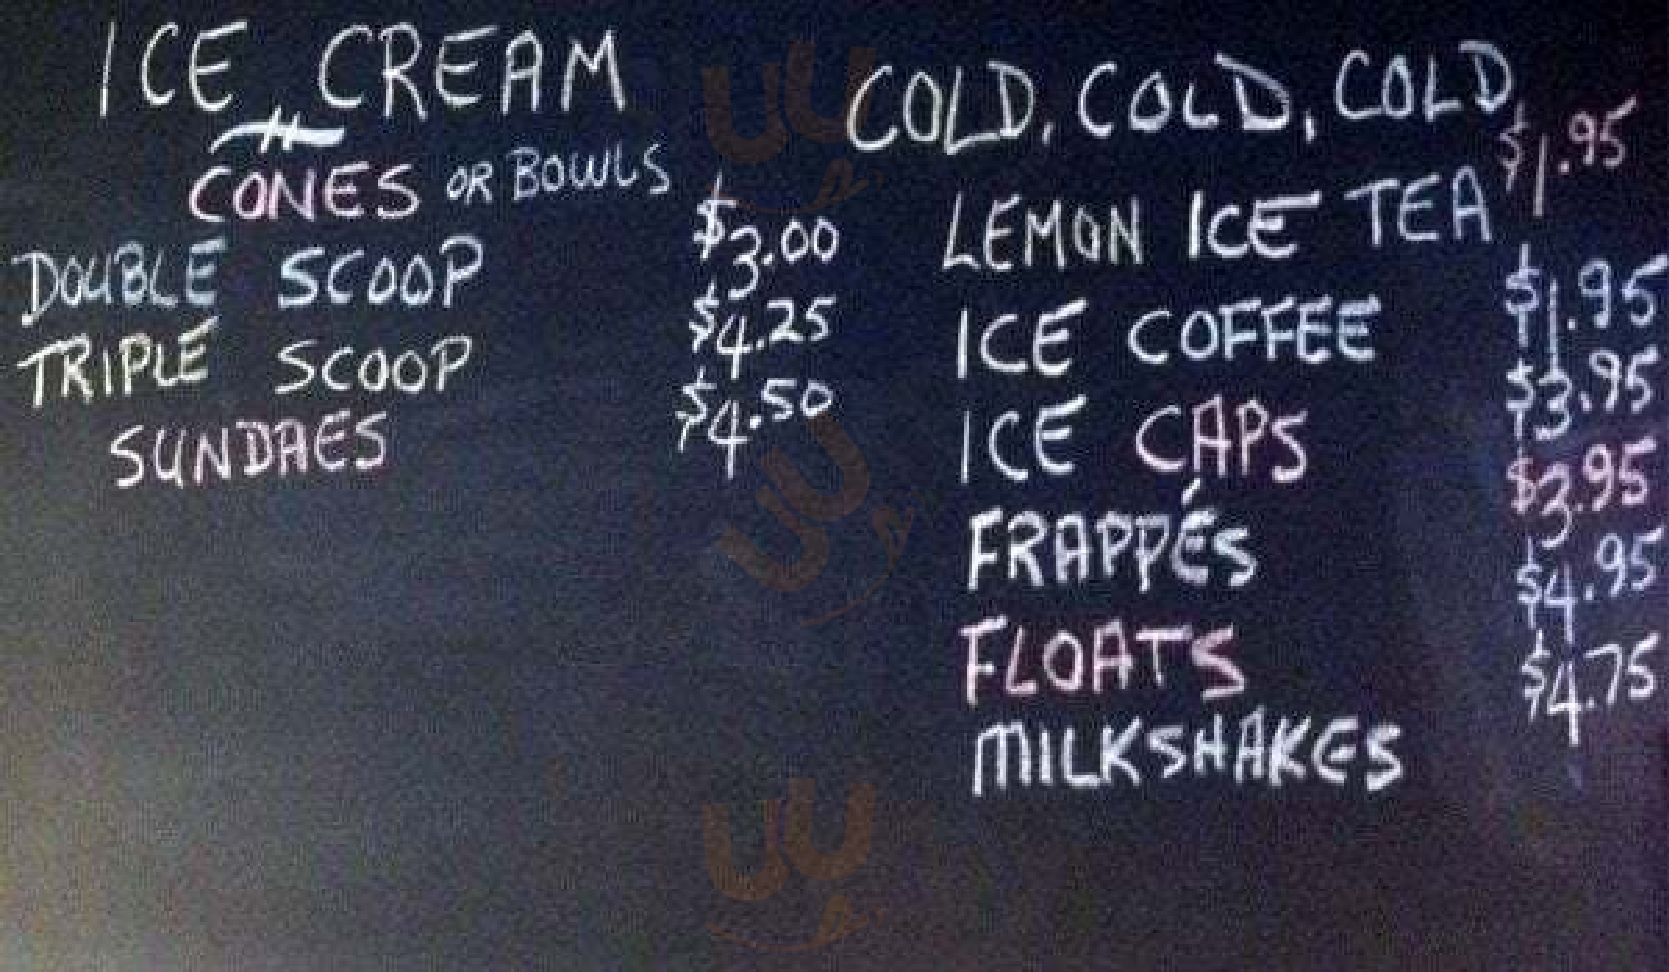 ICE CREAM
CONES OR BOWLS
DOUBLE SCOOP $3.00
TRIPLE SCOOP $4.25
SUNDAES $4.50
COLD, COLD, COLD
LEMON ICE TEA $1.95
ICE COFFEE $1.95
ICE CAPS $3.95
FRAPPÉS $3.95
FLOATS $4.95
MILKSHAKES $4.75